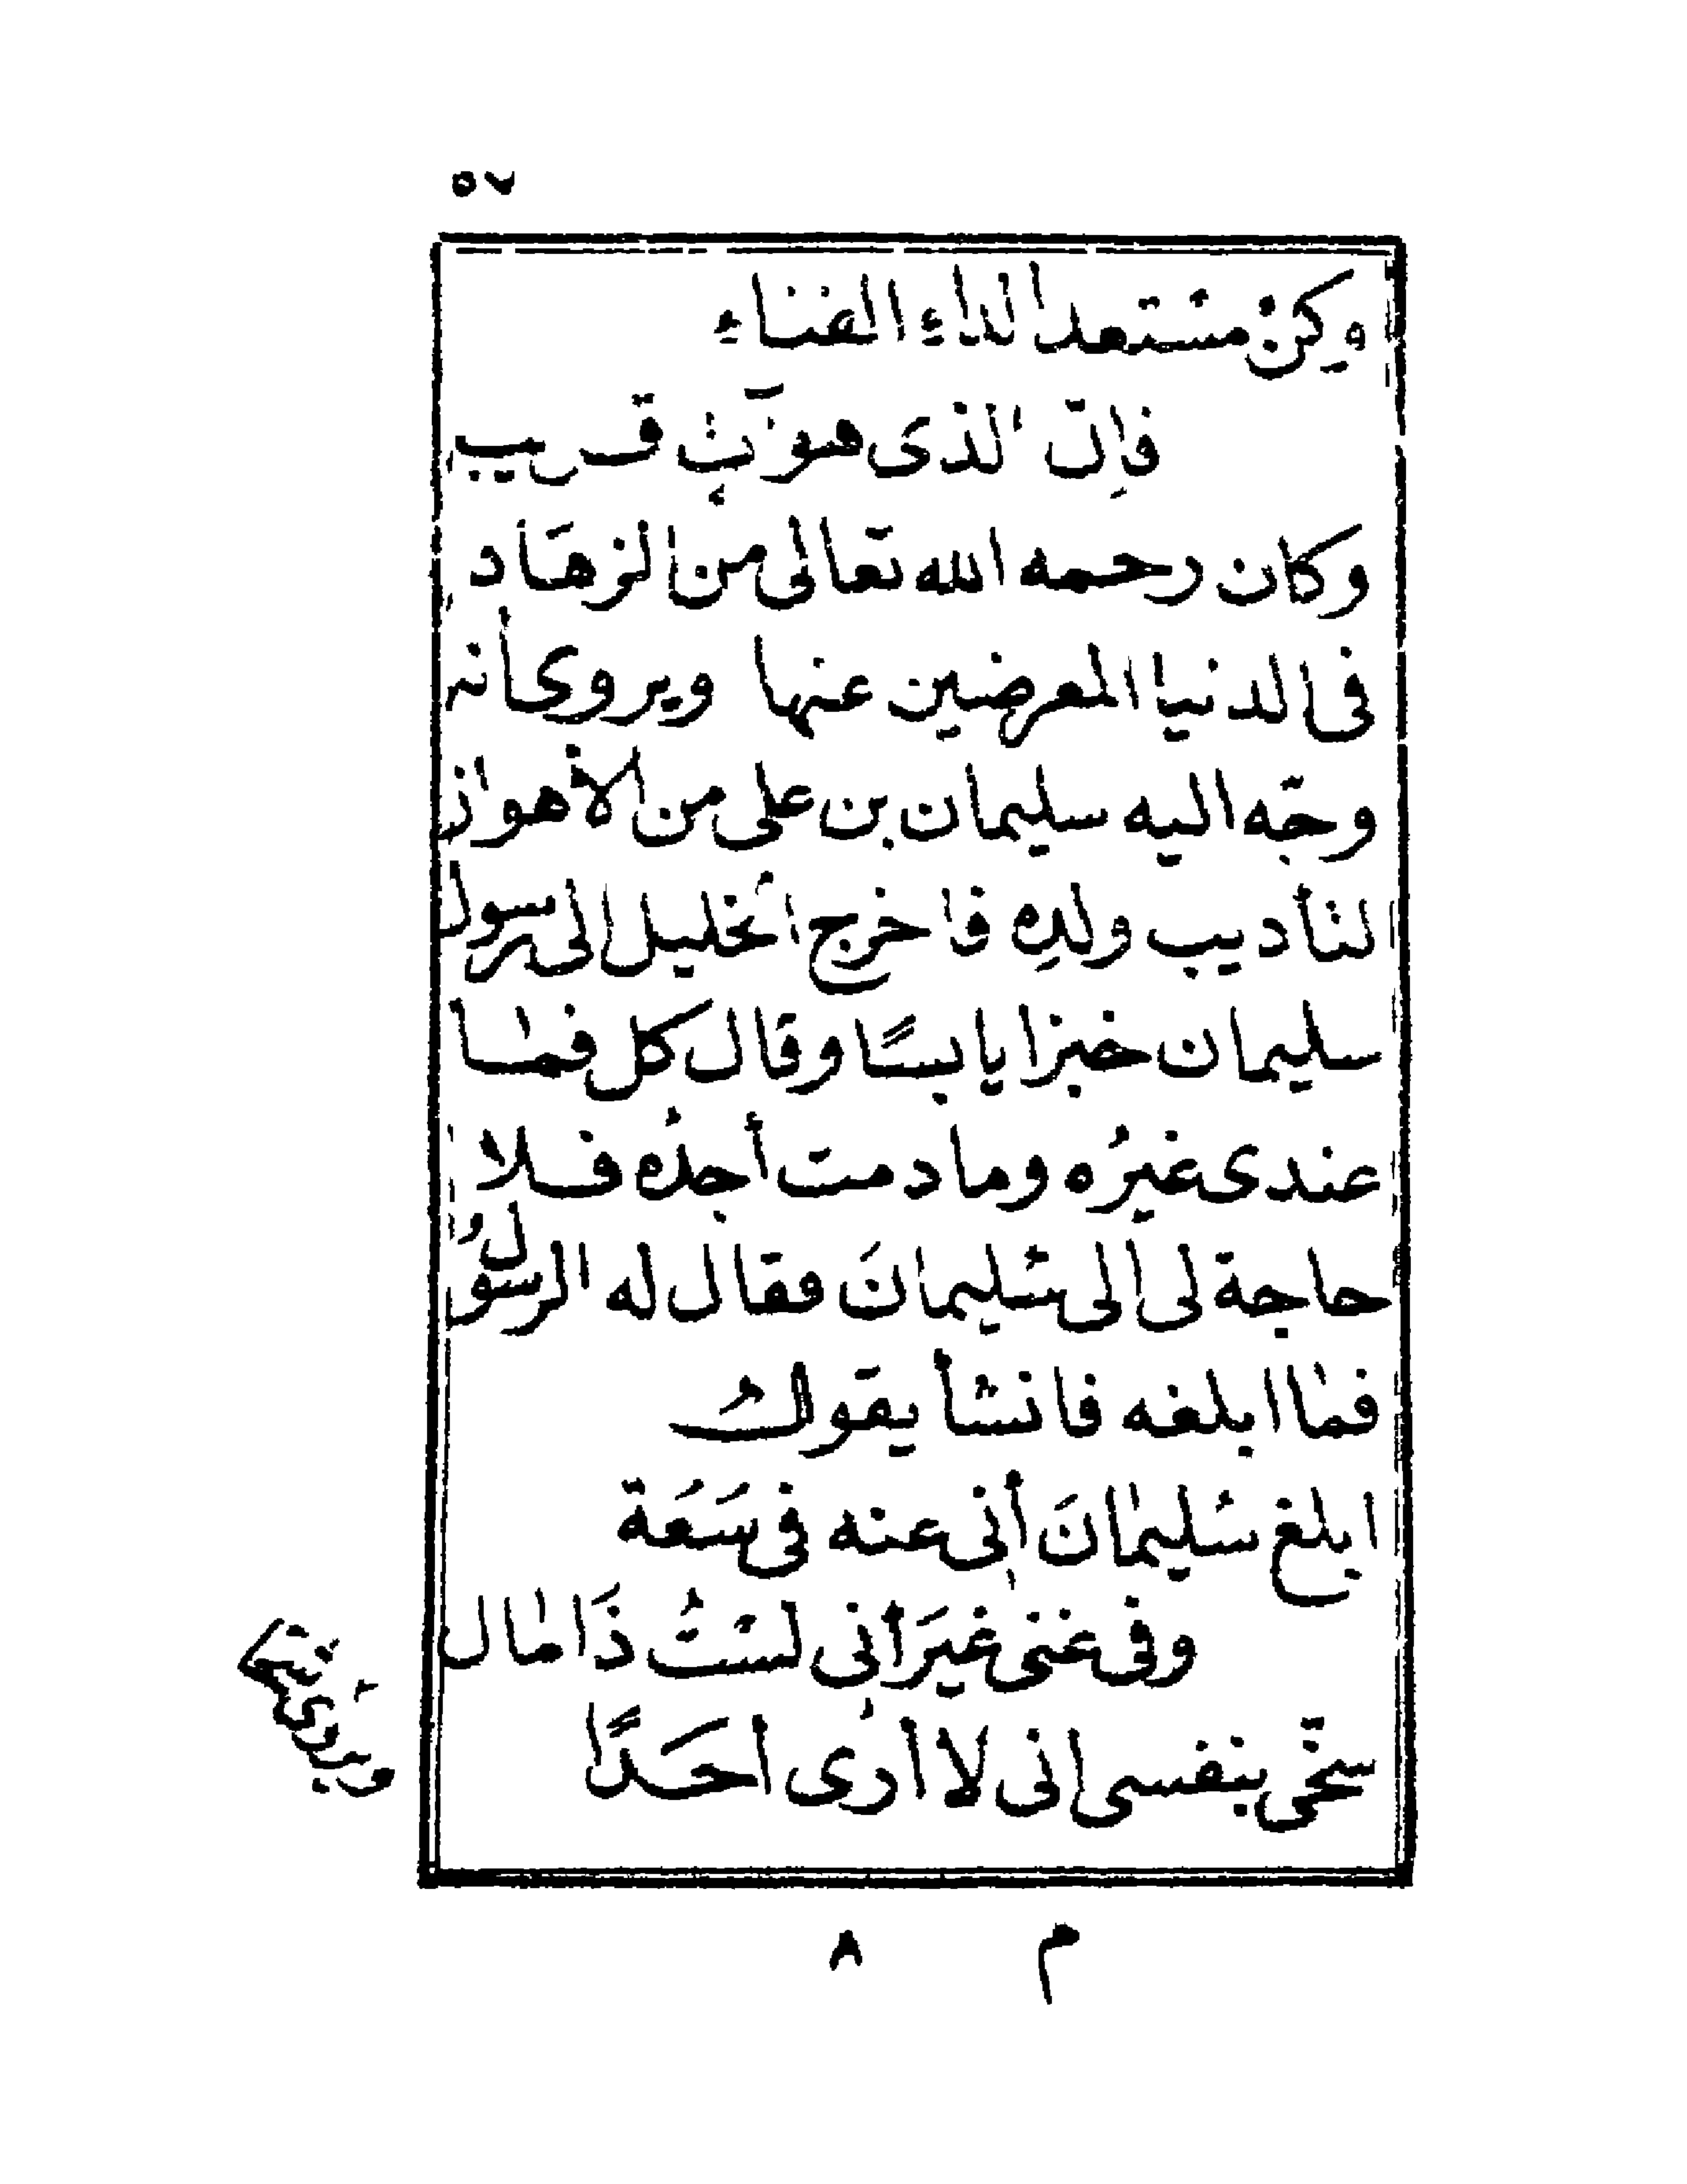 ٥٧
وكنْ مستعدا لداءِ الفناءِ
فإنّ الذى هو آتٍ قريب
وكان رحمه الله تعالى من الزهَاد
فى الدنيا المعرضين عنها ويروى أنه
وجّه اليه سليمان بن على من الأهواز
لتأديب ولدِه فاخرج الخليل الى رسول
سليمان خبزا يابسًا وقال كل فما
عندى غيرُه وما دمت أجدُه فلا
حاجة لى الى سُليمانَ فقال له الرسولُ
فما ابلغه فانشأ يقولُ
ابلغ سُليمانَ أنى عنه فى سَعَة
وفى غنى غيرَ أنى لسْتُ ذَا مال
سخّى بنفسى انى لا أرى أحَدًا
ويروى شحا
م ٨